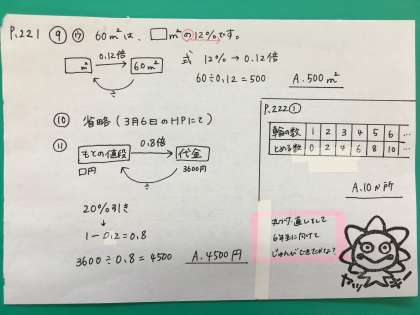 P.221 ⑨ ウ 60m²は、□m²の12%です。
0.12倍
m² 60m²
÷
式 12% → 0.12倍
60÷0.12=500
A.500m²
⑩ 省略(3月6日のHPにて)
⑪
0.8倍
もとの値段 代金
□円 3600円
÷
20%引き
↓
1-0.2=0.8
3600÷0.8=4500 A.4500円
P.222①
輪の数 1 2 3 4 5 6 …
とめる数 0 2 4 6 8 10 …
A.10か所
丸つけ・直しをして
6年生に向けて
じゅんびできたかな?